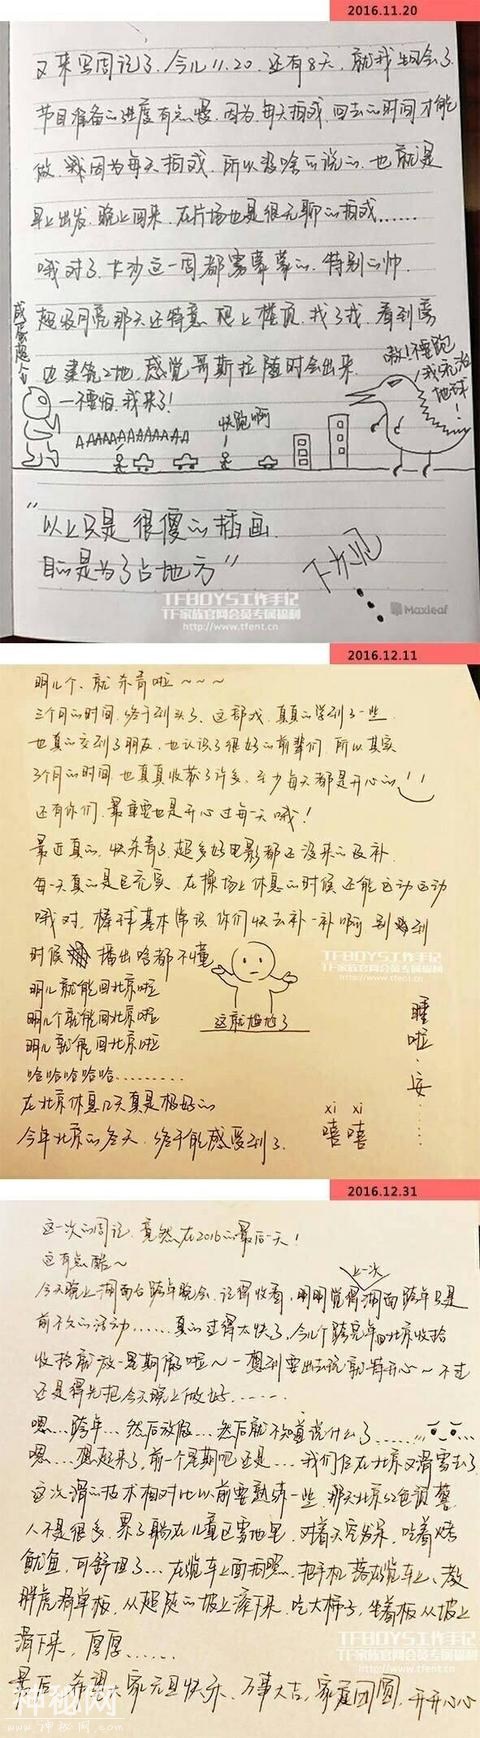 2016.11.20
又来写周记了.今儿11.20.还有8天.就我生日会了.
节目准备的进度有点慢.因为每天拍戏.回去的时间才能
做.我因为每天拍戏.所以没啥可说的.也就是
早上出发.晚上回来.在片场也是很无聊的拍戏......
哦对了.长沙这一周都雾蒙蒙的.特别的帅.
超级月亮那天还特意爬上楼顶.找了找.看到雾
中建筑工地.感觉哥斯拉随时会出来.
一不要怕.我来了!
AAAAAAAAAAAA
快跑啊
嗷!不要跑
地球!
"以上只是很傻的插画.
目的是为了占地方"
下次见
TFBOYS工作手记
TF家族官网会员专属福利
http://www.tfent.cn
Maxleaf
2016.12.11
明儿个.就杀青啦~~~
三个月的时间.终于到头了.这部戏.真真的学到了一些.
也真的交到了朋友.也认识了很好的前辈们.所以其实
3个月的时间.也真真收获了许多.至少每天都是开心的!!
还有你们.最重要也是开心过每一天哦!
最近真的.快杀青了.超多好电影都还没来的及补.
每一天真的是巨充实.在操场上休息的时候还能运动运动
哦对.棒球基本常识你们快去补一补啊.别到
时候播出啥都不懂
这就尴尬了
明儿就能回北京啦
明儿个就能回北京啦
明儿就能回北京啦
哈哈哈哈哈.........
在北京休息几天真是极好的
今年北京的冬天.终于能感受到了.
xi xi
嘻嘻
睡啦.安......
TFBOYS工作手记
TF家族官网会员专属福利
http://www.tfent.cn
2016.12.31
这一次的周记.竟然在2016的最后一天!
这有点酷~
上一次
今天晚上湖南台跨年晚会.记得收看.明明觉得湖南跨年只是
前不久的活动......真的过得太快了.今儿个跨完年回北京收拾
收拾就放一星期假啦~一想到要出去玩就特开心~不过
还是得先把今天晚上做好......
嗯...跨年...然后放假...然后就不知道说什么了......
嗯...想起来了.前一个星期吧还是...我们仨在北京又滑雪去了
这次滑的技术相对比以前要熟练一些.那天北京红色预警.
人不是很多.累了躺在儿童区雪地里.对着天空发呆.吃着烤
鱿鱼.可舒坦了...在缆车上面拍照.把手机落在缆车上、教
胖虎滑单板.从超陡的坡上滚下来.吃大柿子.坐着板从坡上
滑下来,厚厚......
最后.希望大家元旦快乐.万事大吉.家庭团圆.开开心心
TFBOYS工作手记
TF家族官网会员专属福利
http://www.tfent.cn
神秘网